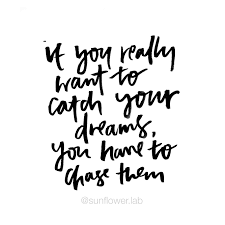 if you really
want to
catch your
dreams,
you have to
chase them
@sunflower.lab